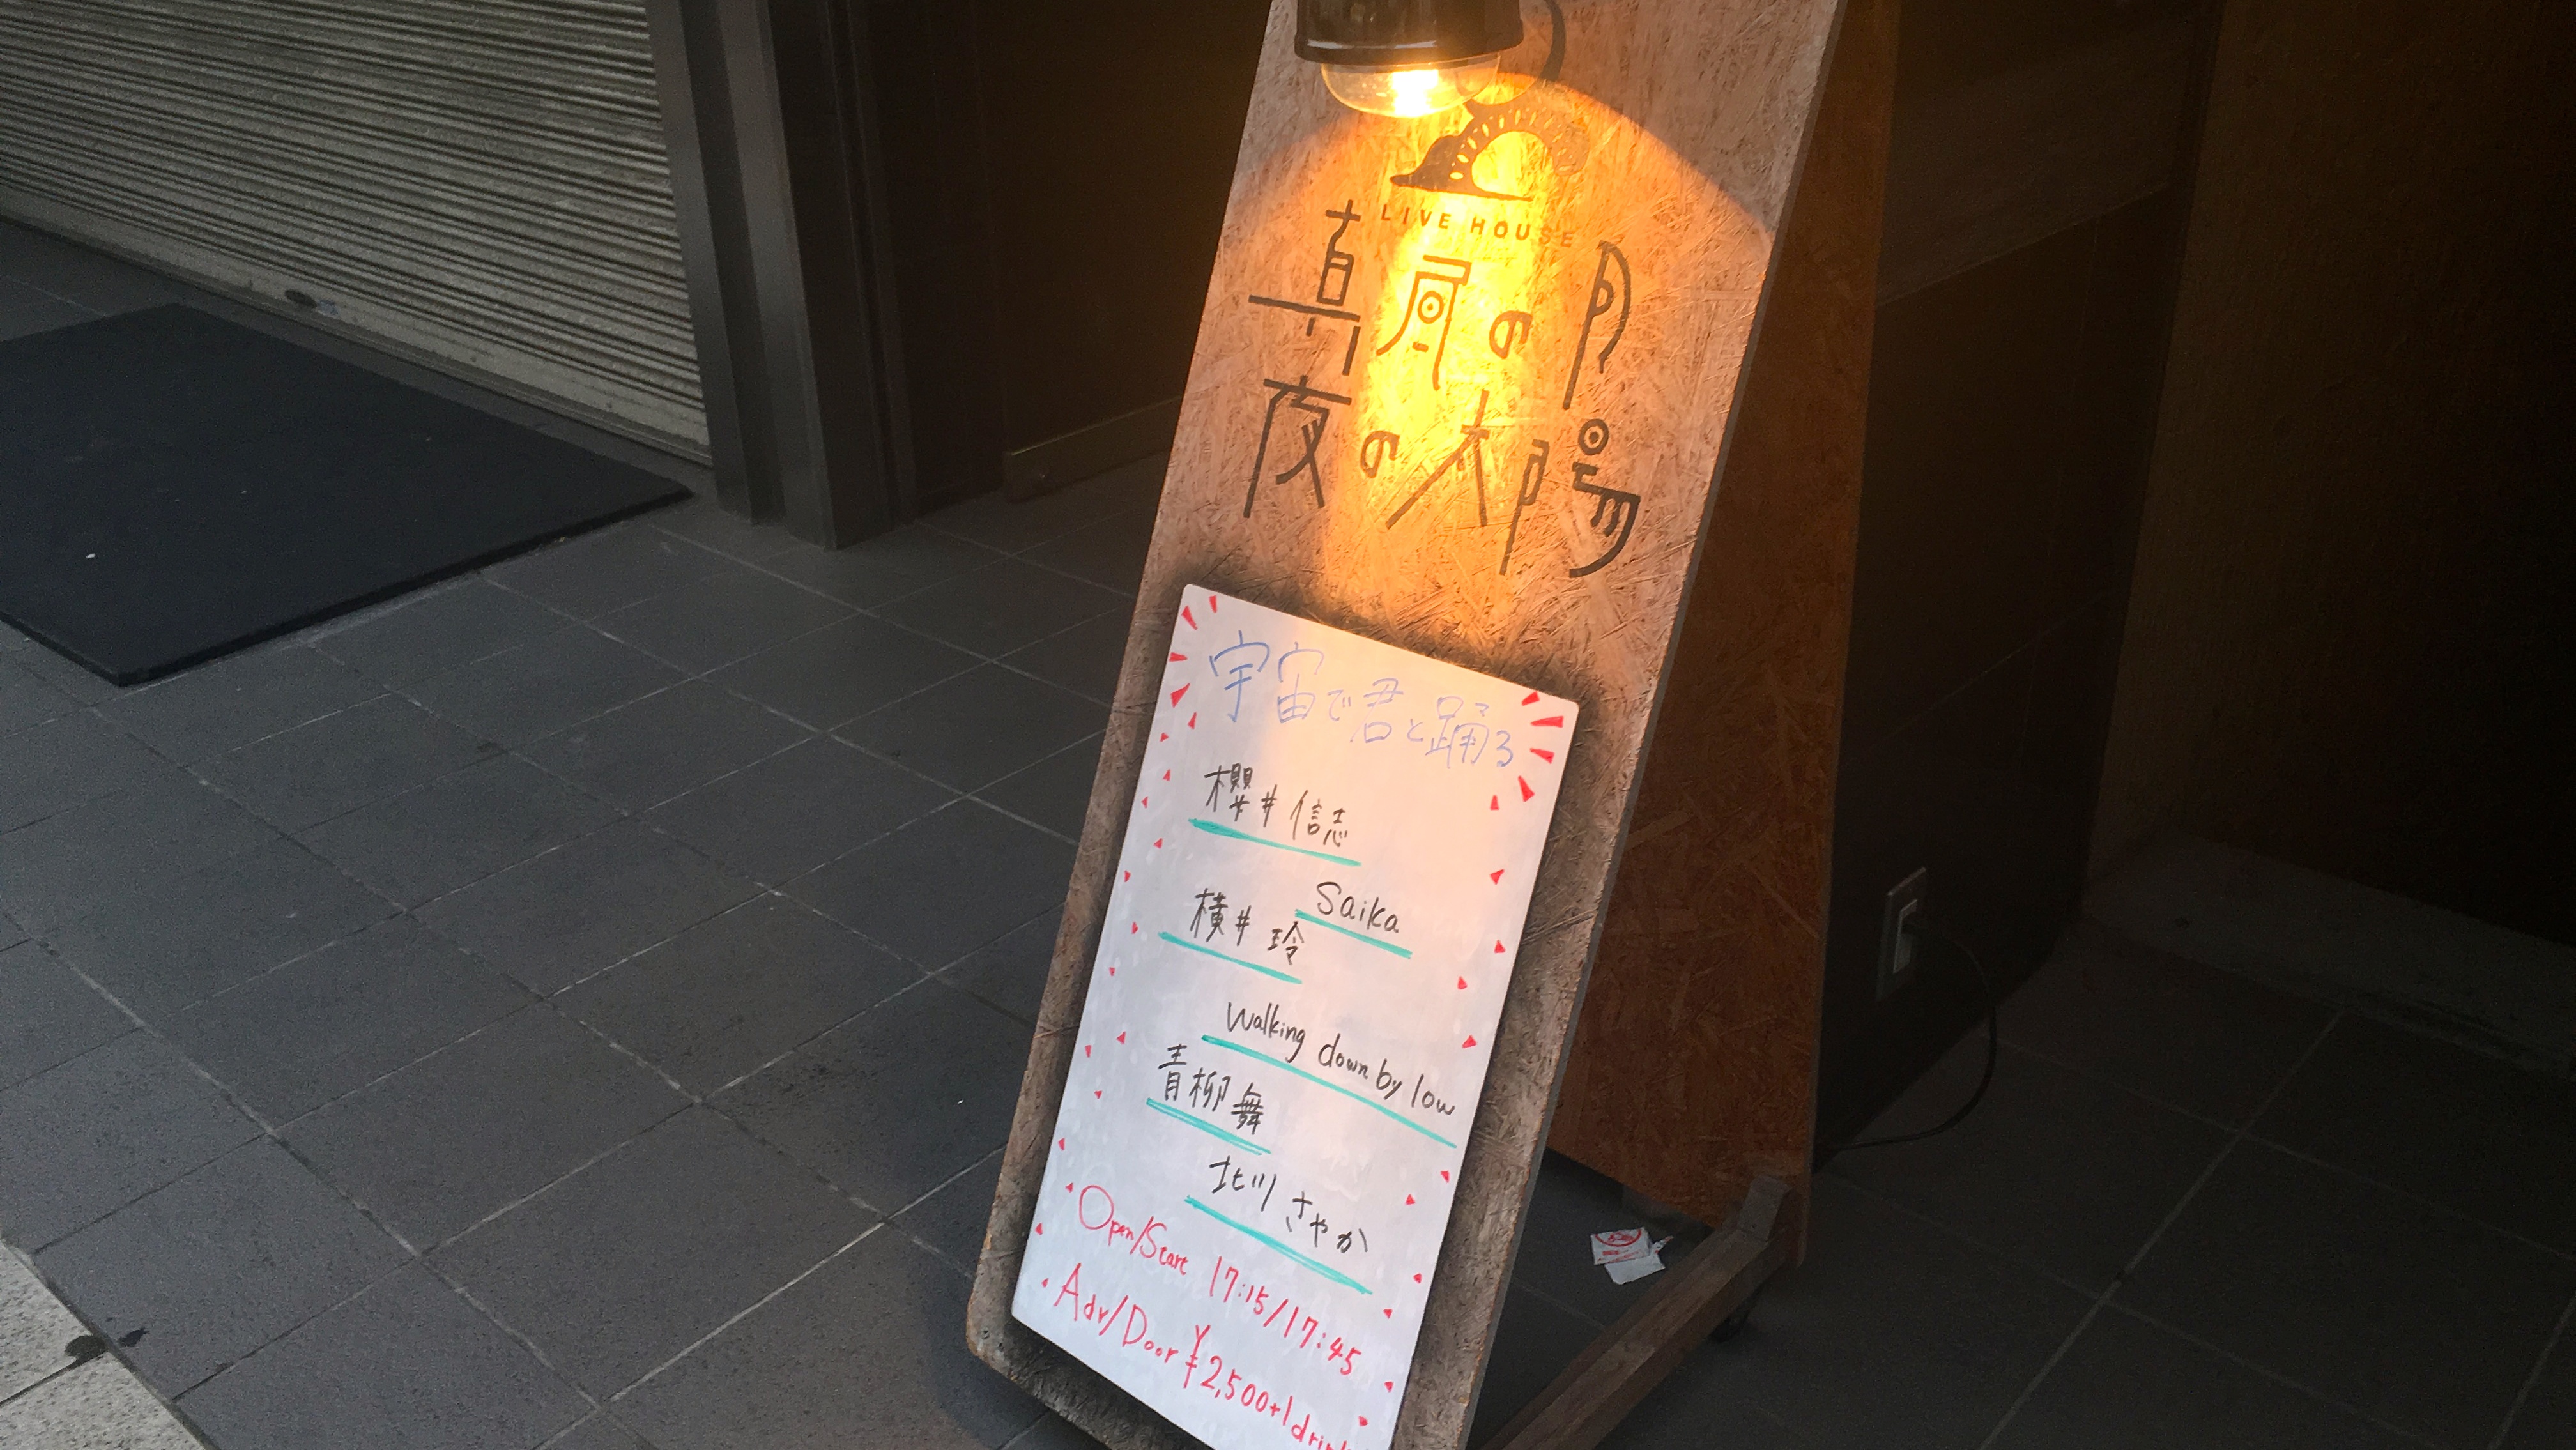 LIVE HOUSE
真昼の月
夜の太陽
宇宙で君と踊る
櫻井 信志
Saika
横井 玲
Walking down by low
青柳 舞
北川 さやか
Open/Start 17:15/17:45
Adv/Door ¥2,500+1drin